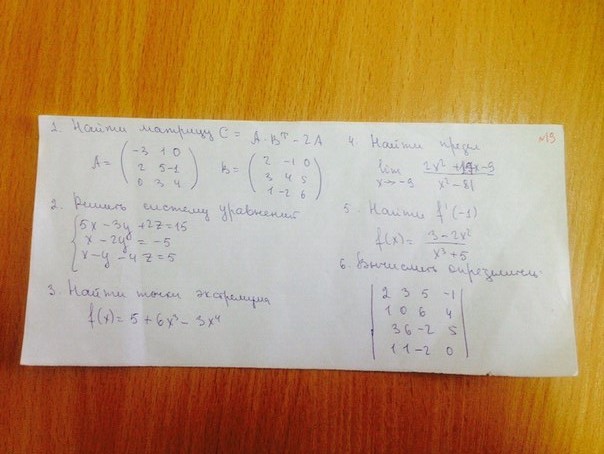 1. Найти матрицу C = A·Bᵀ - 2A
A = ( -3 1 0
2 5 -1
0 3 4 )
B = ( 2 -1 0
3 4 5
1 -2 6 )
2. Решить систему уравнений
{ 5x - 3y + 2z = 15
x - 2y = -5
x - y - 4z = 5
3. Найти точки экстремума
f(x) = 5 + 6x³ - 3x⁴
№19
4. Найти предел
lim x→-9 (2x² + 17x - 9) / (x² - 81)
5. Найти f'(-1)
f(x) = (3 - 2x²) / (x³ + 5)
6. Вычислить определитель
| 2 3 5 -1 |
| 1 0 6 4 |
| 3 6 -2 5 |
| 1 1 -2 0 |